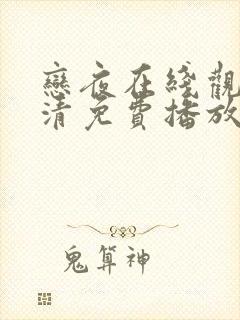 戀夜在綫觀
清免費播放
鬼算神